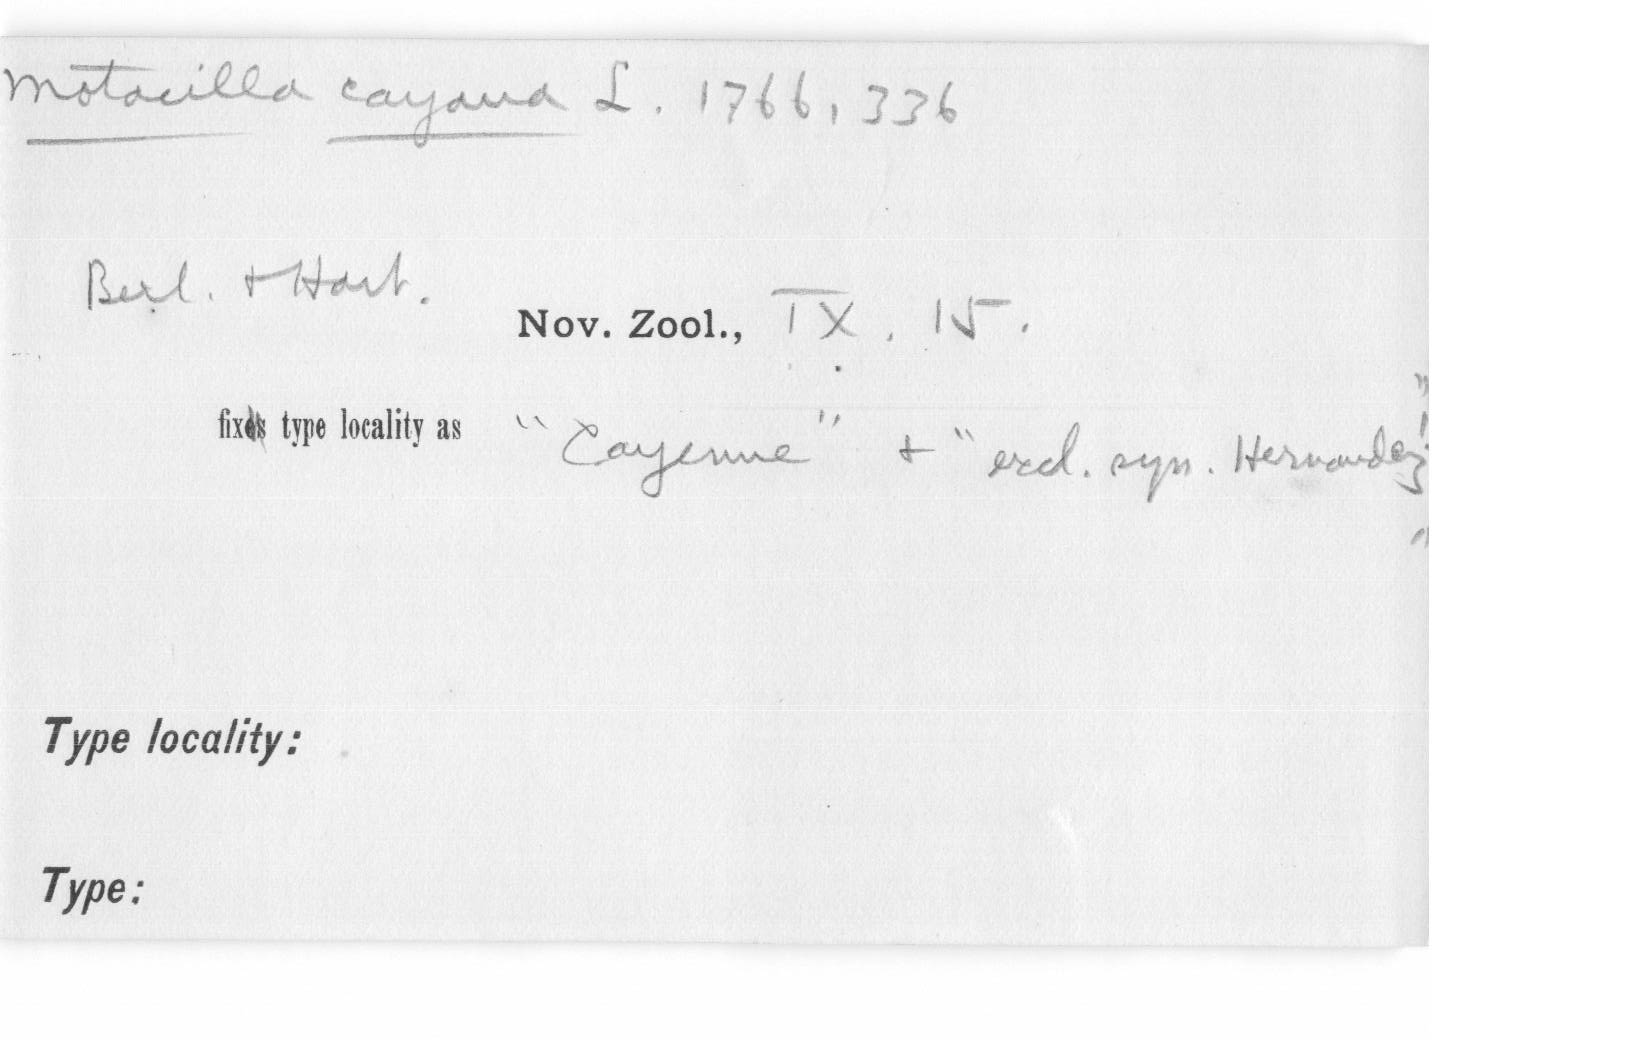 Motacilla cayana L. 1766, 336
Berl. + Hart.
Nov. Zool., IX. 15.
fixes type locality as "Cayenne" + "excl. syn. Hernandez!"
Type locality:
Type: